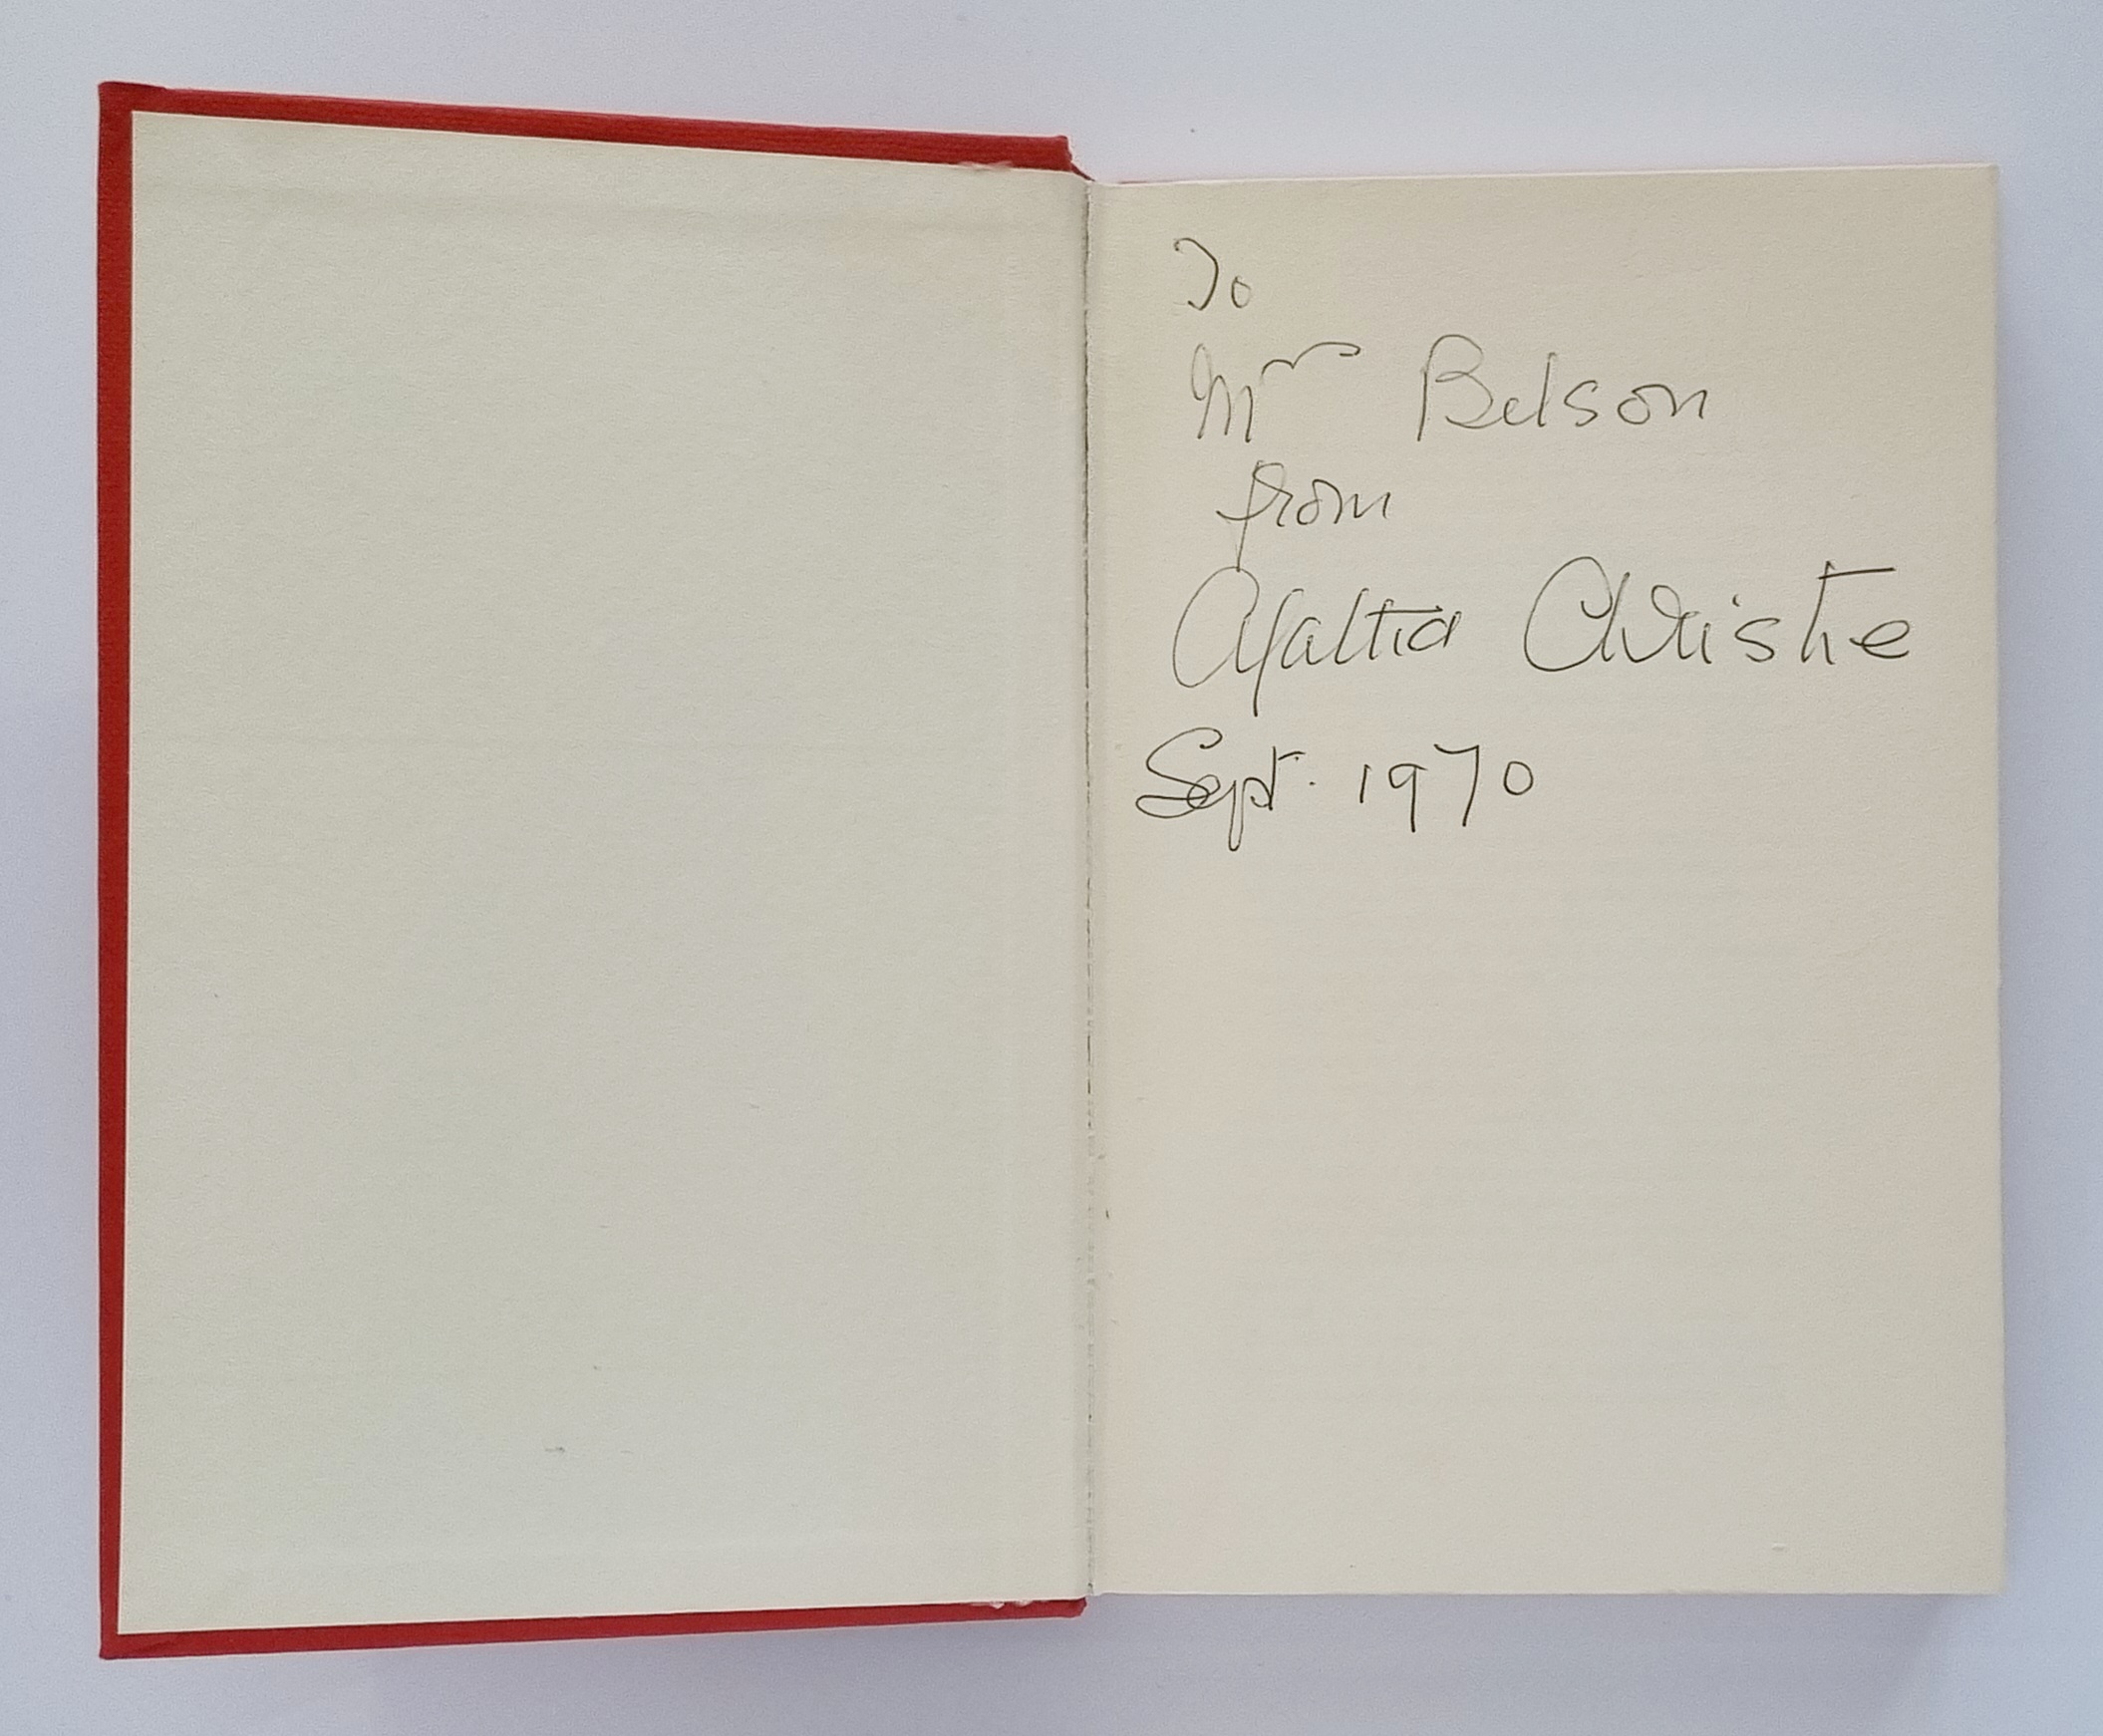 To
Mrs Belson
from
Agatha Christie
Sept. 1970